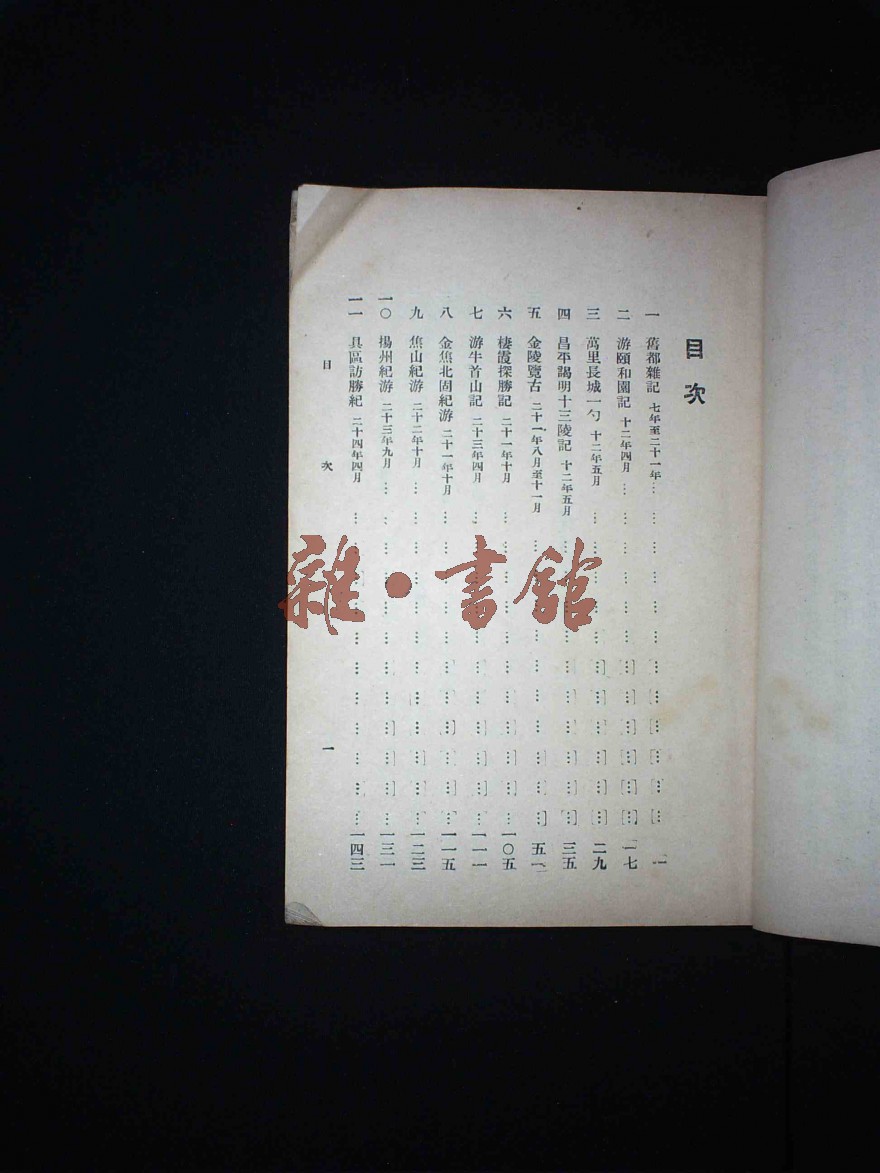 目次
一 舊都雜記 七年至二十一年 … … … … … … … … … … … … 一
二 游頤和園記 十二年四月 … … … … … … … … … … … … 一七
三 萬里長城一勺 十二年五月 … … … … … … … … … … … 二九
四 昌平謁明十三陵記 十二年五月 … … … … … … … … … … 三五
五 金陵覽古 二十一年八月至十一月 … … … … … … … … … … 五一
六 棲霞探勝記 二十一年十月 … … … … … … … … … … … 一〇五
七 游牛首山記 二十三年四月 … … … … … … … … … … … 一一一
八 金焦北固紀游 二十一年十月 … … … … … … … … … … … 一一五
九 焦山紀游 二十二年十月 … … … … … … … … … … … … 一二三
一〇 揚州紀游 二十三年九月 … … … … … … … … … … … … 一三一
一一 具區訪勝紀 二十四年四月 … … … … … … … … … … … 一四三
目 次 一
雜·書館